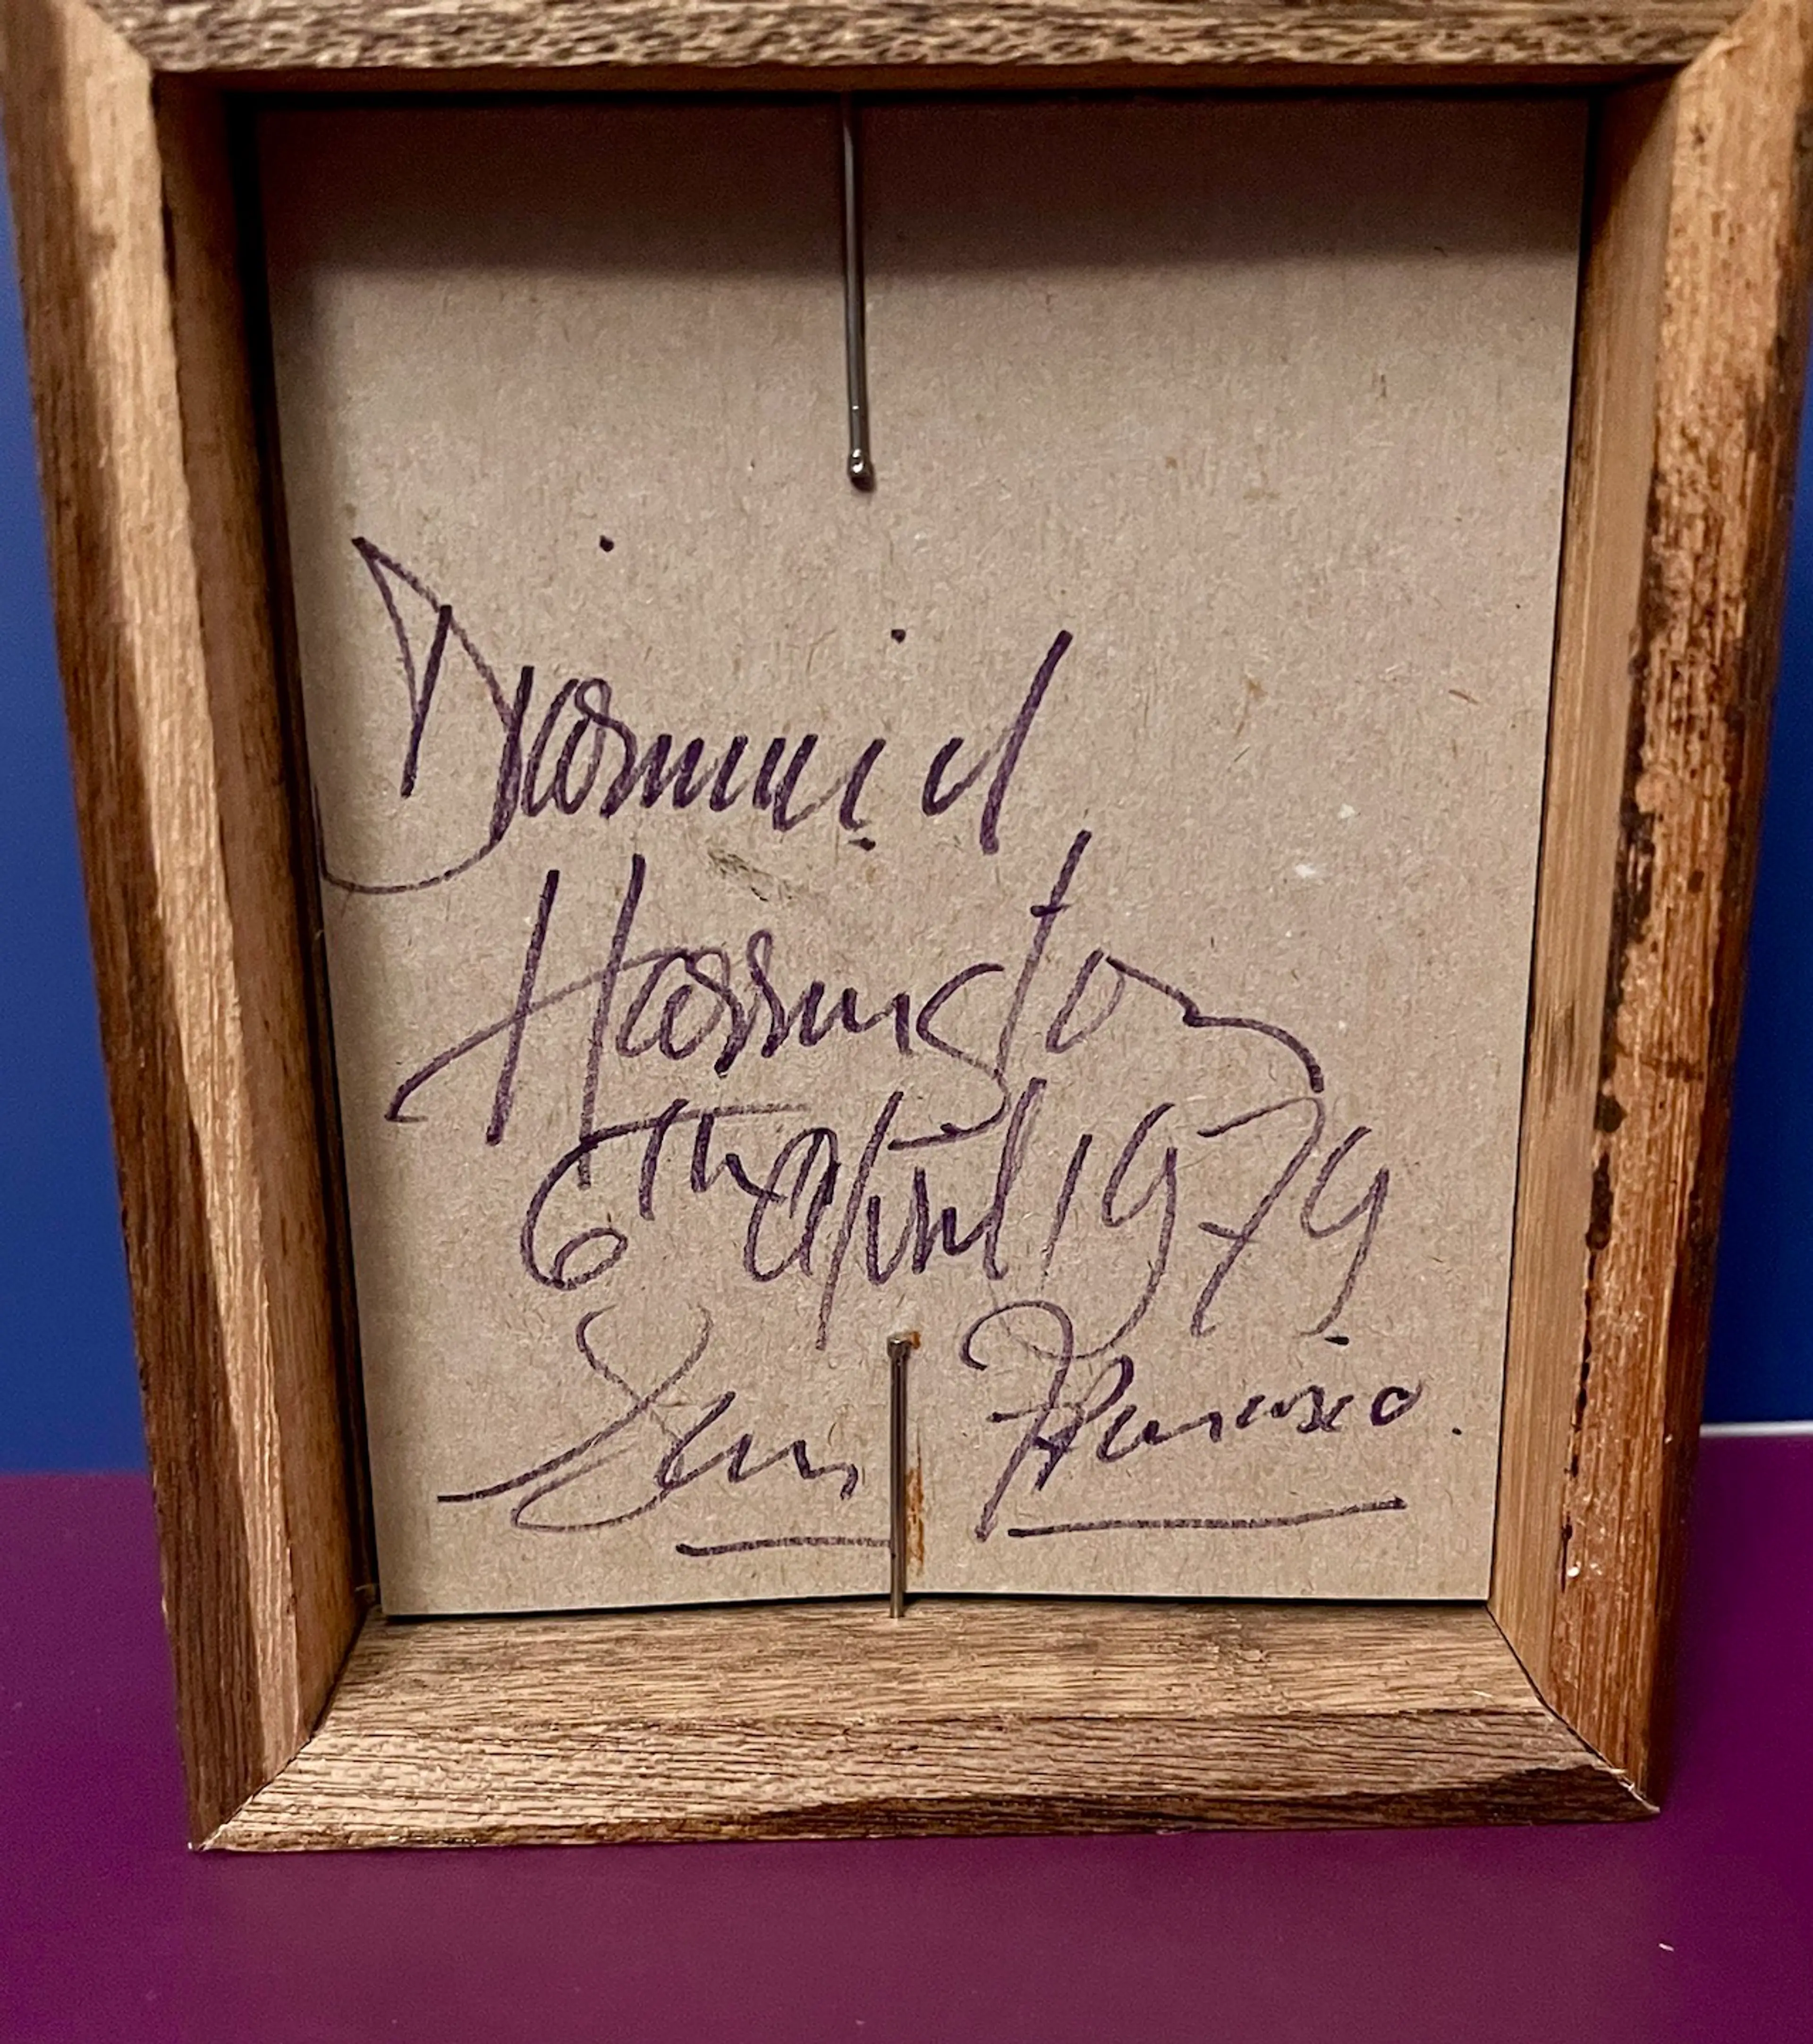 Diarmuid
Harrington
6Th april 1979
San Francisco.